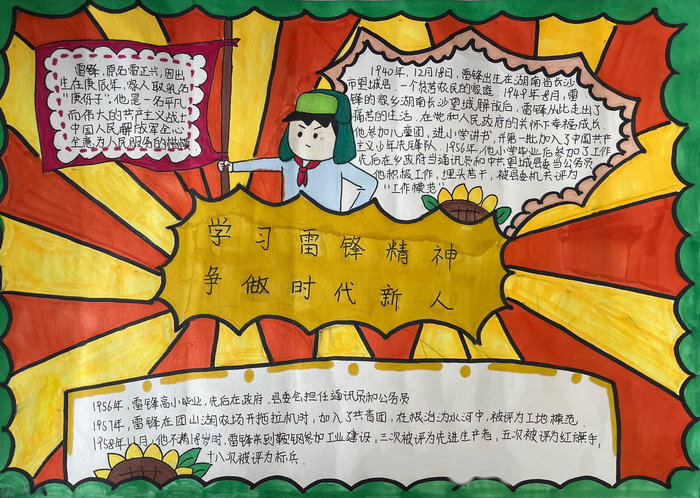 雷锋，原名雷正兴，因出
生在庚辰年，家人取乳名
“庚伢子”。他是一名平凡
而伟大的共产主义战士
中国人民解放军全心
全意为人民服务的楷模
1940年，12月18日，雷锋出生在湖南省长沙
市望城县，一个贫苦农民的家庭，1949年8月，雷
锋的家乡湖南长沙望城解放后，雷锋从此走出了
痛苦的生活，在党和人民政府的关怀下幸福成长
他参加儿童团，进小学讲书，并第一批加入了中国共产
主义少年先锋队，1956年，他小学毕业后参加了工作
先后在乡政府当通讯员和中共望城县委当公务员
他积极工作，埋头苦干，被县委机关评为
“工作模范”
学习雷锋精神
争做时代新人
1956年，雷锋高小毕业，先后在政府、县委会担任通讯员和公务员
1957年，雷锋在团山湖农场开拖拉机时，加入了共青团，在根治沩水河中，被评为工地模范．
1958年11月，他不满18岁时，雷锋来到鞍钢参加工业建设，三次被评为先进生产者，五次被评为红旗手，
十八次被评为标兵．